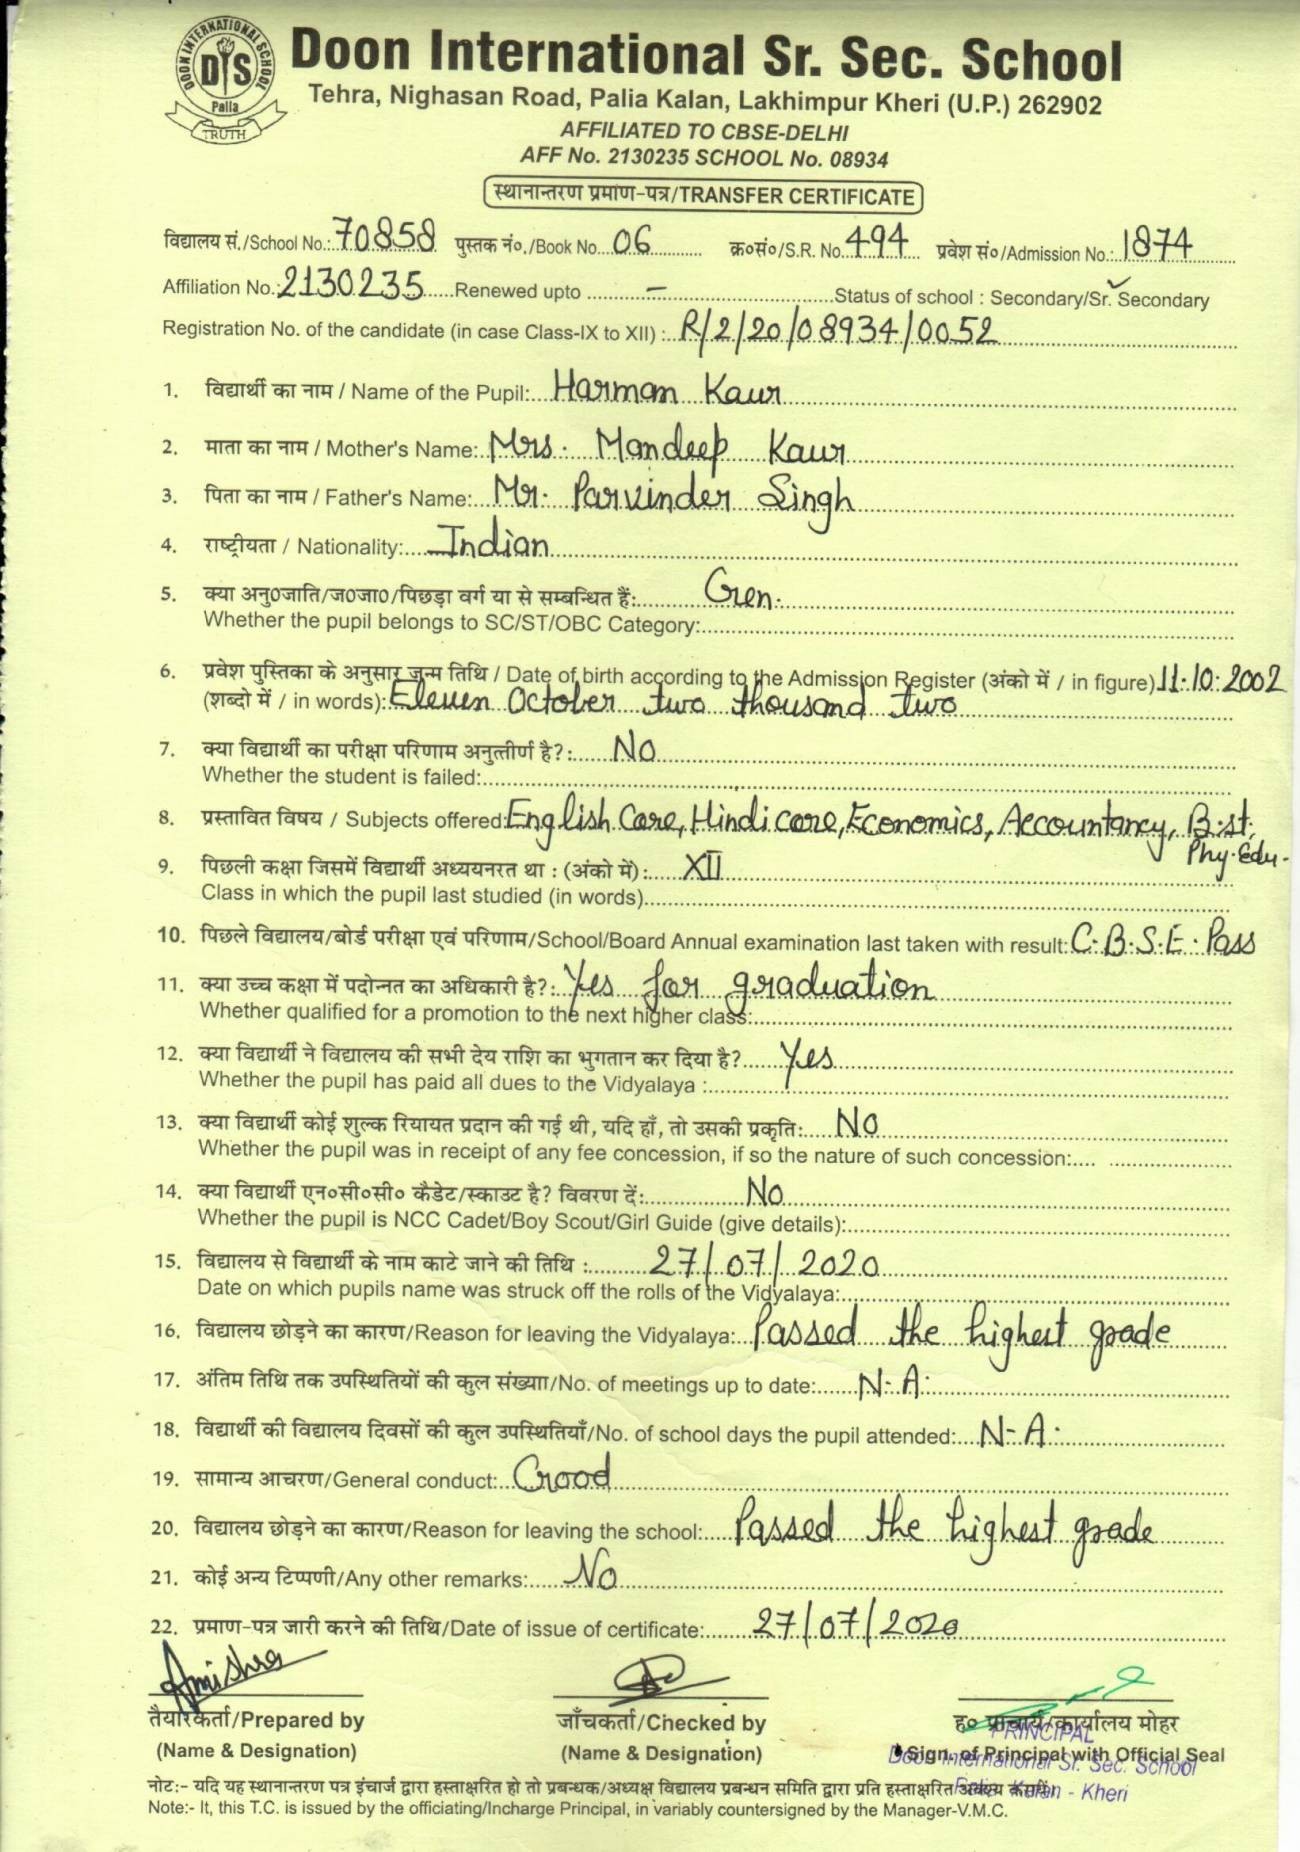 DOON INTERNATIONAL SCHOOL
DIS
Palia
TRUTH
Doon International Sr. Sec. School
Tehra, Nighasan Road, Palia Kalan, Lakhimpur Kheri (U.P.) 262902
AFFILIATED TO CBSE-DELHI
AFF No. 2130235 SCHOOL No. 08934
स्थानान्तरण प्रमाण-पत्र/TRANSFER CERTIFICATE
विद्यालय सं./School No.: 70858 पुस्तक नं०./Book No. 06 क्र०सं०/S.R. No. 494 प्रवेश सं०/Admission No.: 1874
Affiliation No.: 2130235 Renewed upto – Status of school : Secondary/Sr. Secondary
Registration No. of the candidate (in case Class-IX to XII) : R/2/20/08934/0052
1. विद्यार्थी का नाम / Name of the Pupil: Harman Kaur
2. माता का नाम / Mother's Name: Mrs. Mandeep Kaur
3. पिता का नाम / Father's Name: Mr. Parvinder Singh
4. राष्ट्रीयता / Nationality: Indian
5. क्या अनु०जाति/ज०जा०/पिछड़ा वर्ग या से सम्बन्धित हैं: Gen.
Whether the pupil belongs to SC/ST/OBC Category:
6. प्रवेश पुस्तिका के अनुसार जन्म तिथि / Date of birth according to the Admission Register (अंको में / in figure) 11.10.2002
(शब्दो में / in words): Eleven October two thousand two
7. क्या विद्यार्थी का परीक्षा परिणाम अनुत्तीर्ण है?: No
Whether the student is failed:
8. प्रस्तावित विषय / Subjects offered: English Core, Hindi core, Economics, Accountancy, B.st,
Phy. Edu.
9. पिछली कक्षा जिसमें विद्यार्थी अध्ययनरत था : (अंको में): XII
Class in which the pupil last studied (in words)
10. पिछले विद्यालय/बोर्ड परीक्षा एवं परिणाम/School/Board Annual examination last taken with result: C.B.S.E. Pass
11. क्या उच्च कक्षा में पदोन्नत का अधिकारी है?: Yes for graduation
Whether qualified for a promotion to the next higher class:
12. क्या विद्यार्थी ने विद्यालय की सभी देय राशि का भुगतान कर दिया है? Yes
Whether the pupil has paid all dues to the Vidyalaya :
13. क्या विद्यार्थी कोई शुल्क रियायत प्रदान की गई थी, यदि हाँ, तो उसकी प्रकृति: No
Whether the pupil was in receipt of any fee concession, if so the nature of such concession:
14. क्या विद्यार्थी एन०सी०सी० कैडेट/स्काउट है? विवरण दें: No
Whether the pupil is NCC Cadet/Boy Scout/Girl Guide (give details):
15. विद्यालय से विद्यार्थी के नाम काटे जाने की तिथि : 27/07/2020
Date on which pupils name was struck off the rolls of the Vidyalaya:
16. विद्यालय छोड़ने का कारण/Reason for leaving the Vidyalaya: Passed the highest grade
17. अंतिम तिथि तक उपस्थितियों की कुल संख्याा/No. of meetings up to date: N.A.
18. विद्यार्थी की विद्यालय दिवसों की कुल उपस्थितियाँ/No. of school days the pupil attended: N.A.
19. सामान्य आचरण/General conduct: Good
20. विद्यालय छोड़ने का कारण/Reason for leaving the school: Passed the highest grade
21. कोई अन्य टिप्पणी/Any other remarks: No
22. प्रमाण-पत्र जारी करने की तिथि/Date of issue of certificate: 27/07/2020
तैयारकर्ता/Prepared by जाँचकर्ता/Checked by ह० प्राचार्य/कार्यालय मोहर
PRINCIPAL
(Name & Designation) (Name & Designation) Sign. of Principal with Official Seal
Doon International Sr. Sec. School
Palia Kalan - Kheri
नोट:- यदि यह स्थानान्तरण पत्र इंचार्ज द्वारा हस्ताक्षरित हो तो प्रबन्धक/अध्यक्ष विद्यालय प्रबन्धन समिति द्वारा प्रति हस्ताक्षरित अवश्य करायें।
Note:- It, this T.C. is issued by the officiating/Incharge Principal, in variably countersigned by the Manager-V.M.C.